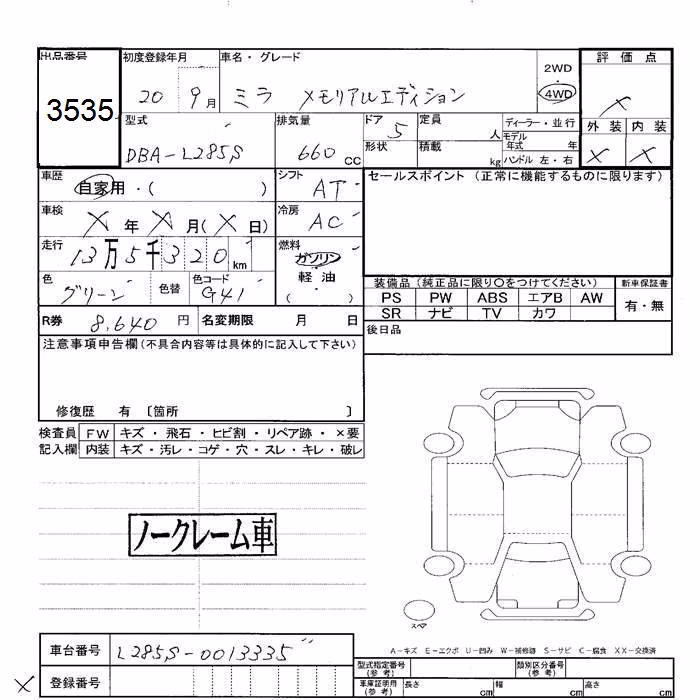 出品番号 初度登録年月 車名・グレード 2WD 評価点
3535 20 9月 ミラ メモリアルエディション 4WD ×
型式 排気量 ドア 定員 ディーラー・並行 外装 内装
DBA-L285S 660 CC 5 人 モデル年式 年 × ×
形状 積載 kg ハンドル 左・右
車歴 シフト セールスポイント (正常に機能するものに限ります)
自家用・( ) AT
車検 冷房
X 年 X 月(X 日) AC
走行 燃料
13万5千320km ガソリン・軽油
色 色替 色コード ( )
グリーン G41
装備品(純正品に限り〇をつけてください) 新車保証書
PS PW ABS エアB AW 有・無
SR ナビ TV カワ
R券 8,640 円 名変期限 月 日 後日品
注意事項申告欄(不具合内容等は具体的に記入して下さい)
修復歴 有 〔箇所 〕
検査員 FW キズ・飛石・ヒビ割・リペア跡・×要
記入欄 内装 キズ・汚レ・コゲ・穴・スレ・キレ・破レ
ノークレーム車
スペア
A-キズ E-エクボ U-凹み W-補修跡 S-サビ C-腐食 XX-交換済
車台番号 L285S-0013335
× 登録番号
型式指定番号(参考) 類別区分番号(参考)
車庫証明用(参考) 長さ cm 幅 cm 高さ cm